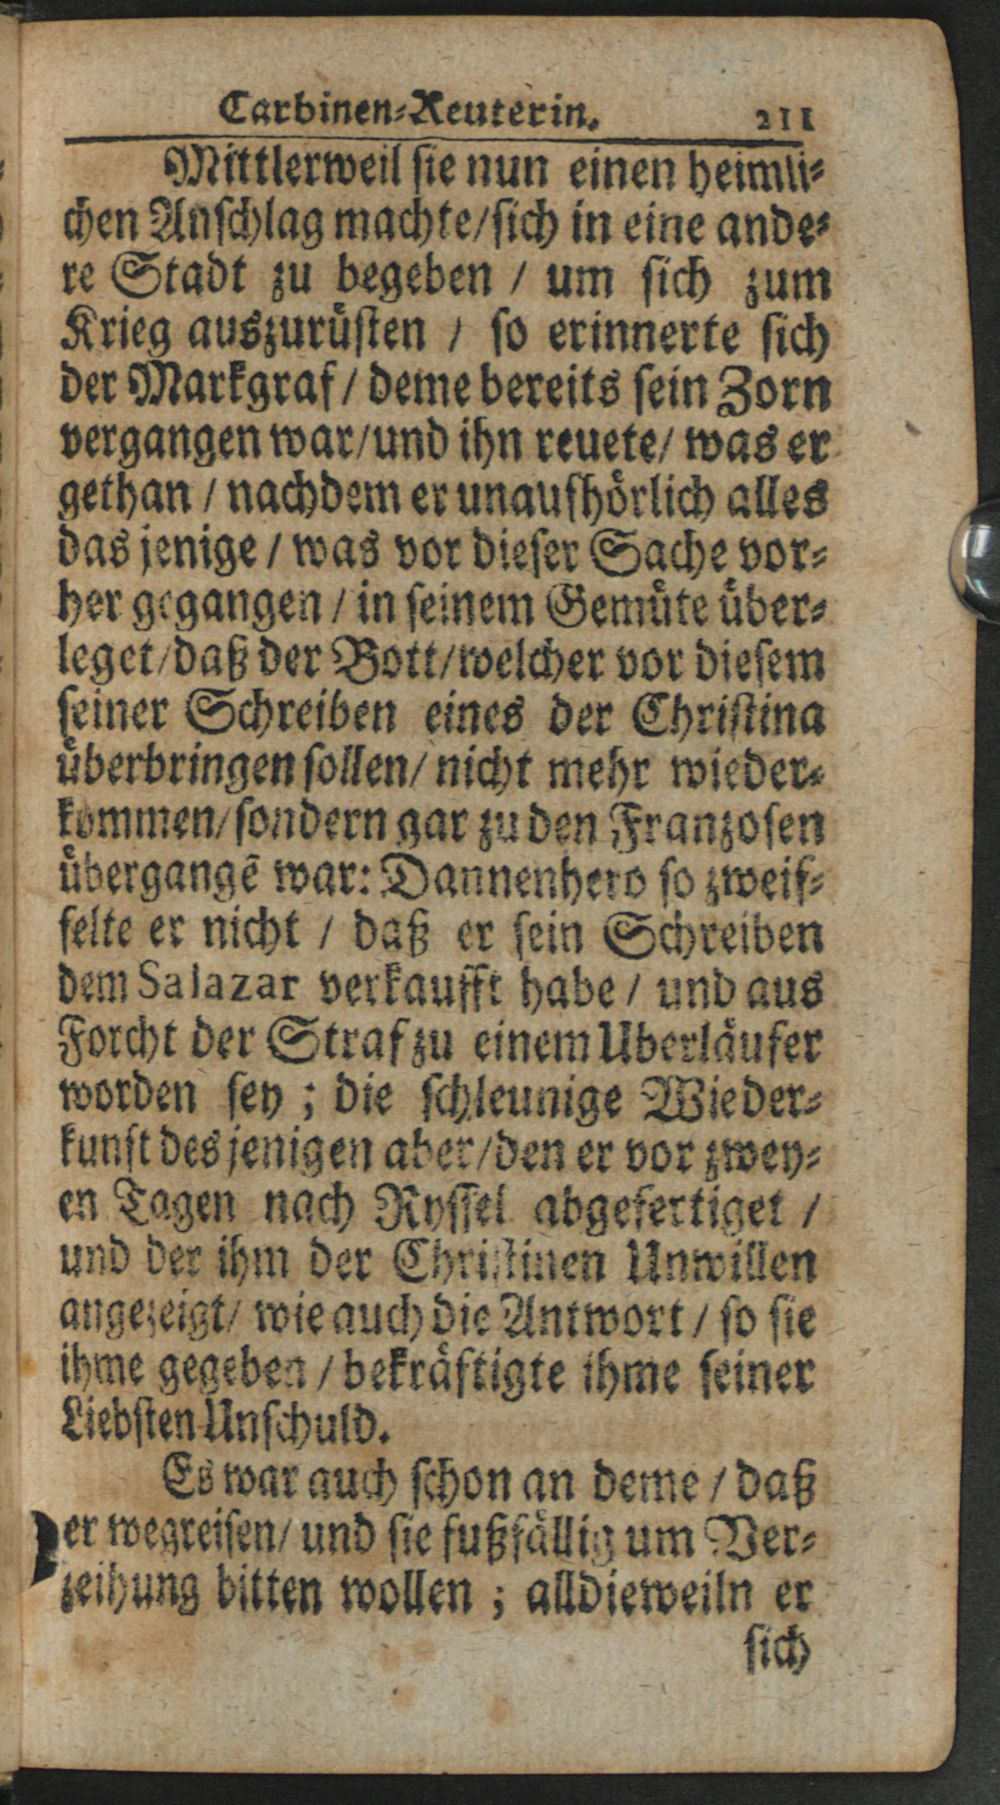 Carbinen-Reuterin. 211
Mittlerweil sie nun einen heimli-
chen Anschlag machte/sich in eine ande-
re Stadt zu begeben / um sich zum
Krieg auszurüsten / so erinnerte sich
der Markgraf / deme bereits sein Zorn
vergangen war/und ihn reuete/ was er
gethan / nachdem er unaufhörlich alles
das jenige / was vor dieser Sache vor-
her gegangen / in seinem Gemüte über-
leget/daß der Bott/welcher vor diesem
seiner Schreiben eines der Christina
überbringen sollen/ nicht mehr wieder-
kommen/sondern gar zu den Franzosen
übergangē war: Dannenhero so zweif-
felte er nicht / daß er sein Schreiben
dem Salazar verkaufft habe / und aus
Forcht der Straf zu einem Uberläufer
worden sey ; die schleunige Wieder-
kunft des jenigen aber/den er vor zwey-
en Tagen nach Ryssel abgefertiget /
und der ihm der Christinen Unwillen
angezeigt/ wie auch die Antwort / so sie
ihme gegeben / bekräftigte ihme seiner
Liebsten Unschuld.
Es war auch schon an deme / daß
er wegreisen/ und sie fußfällig um Ver-
zeihung bitten wollen ; alldieweiln er
sich